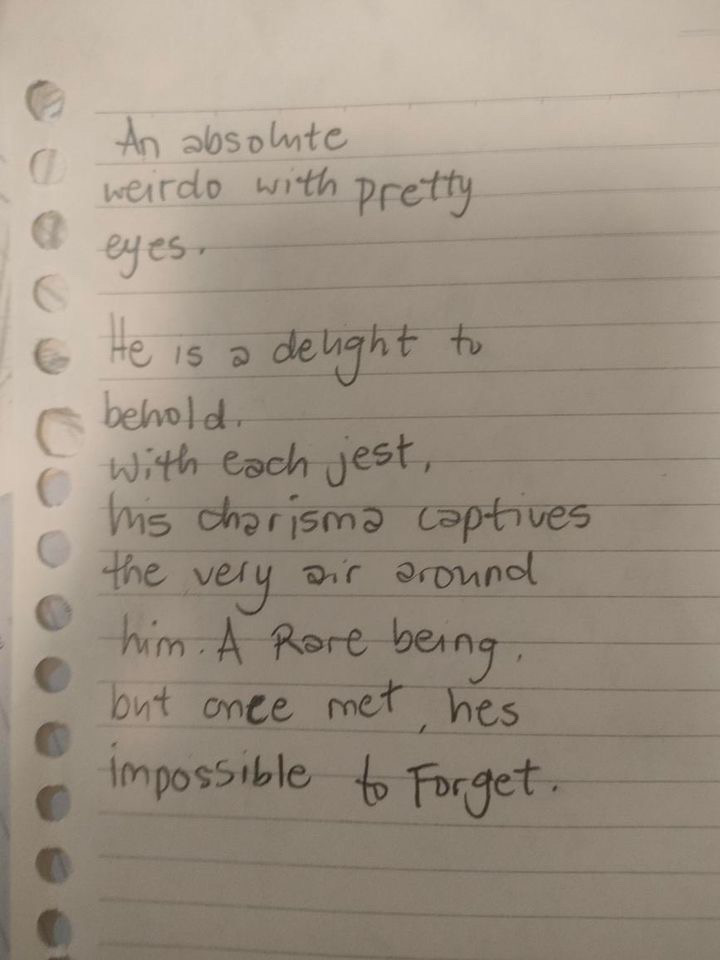 An absolute
weirdo with pretty
eyes.
He is a delight to
behold.
With each jest,
his charisma captives
the very air around
him. A Rare being,
but once met, hes
impossible to Forget.